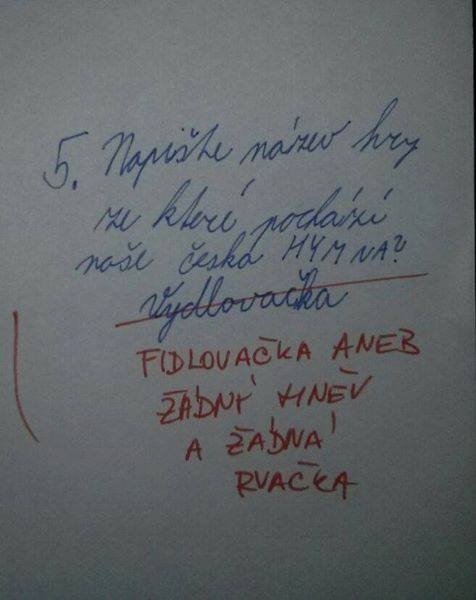 5. Napište název hry
ze které pochází
naše česká HYMNA?
Vydlovačka
FIDLOVAČKA ANEB
ŽÁDNÝ HNĚV
A ŽÁDNÁ
RVAČKA